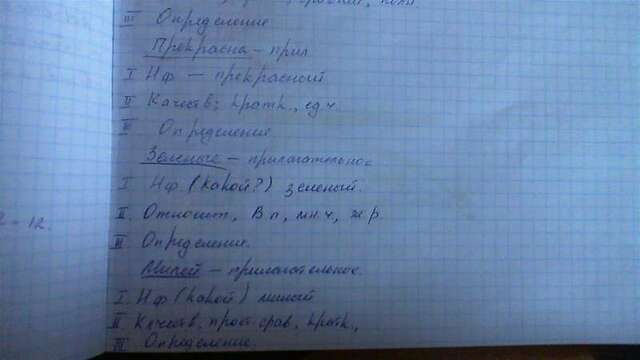 III Определение
Прекрасна – прил
I Нф — прекрасный
II Качеств, кратк., ед ч.
III Определение
Зеленые – прилагательное
I Нф (какой?) зеленый.
II Относит, В п, мн. ч, ж р.
III Определение.
Милей – прилагательное.
I Нф (какой) милый
II Качеств, прост. срав, кратк.,
III Определение.